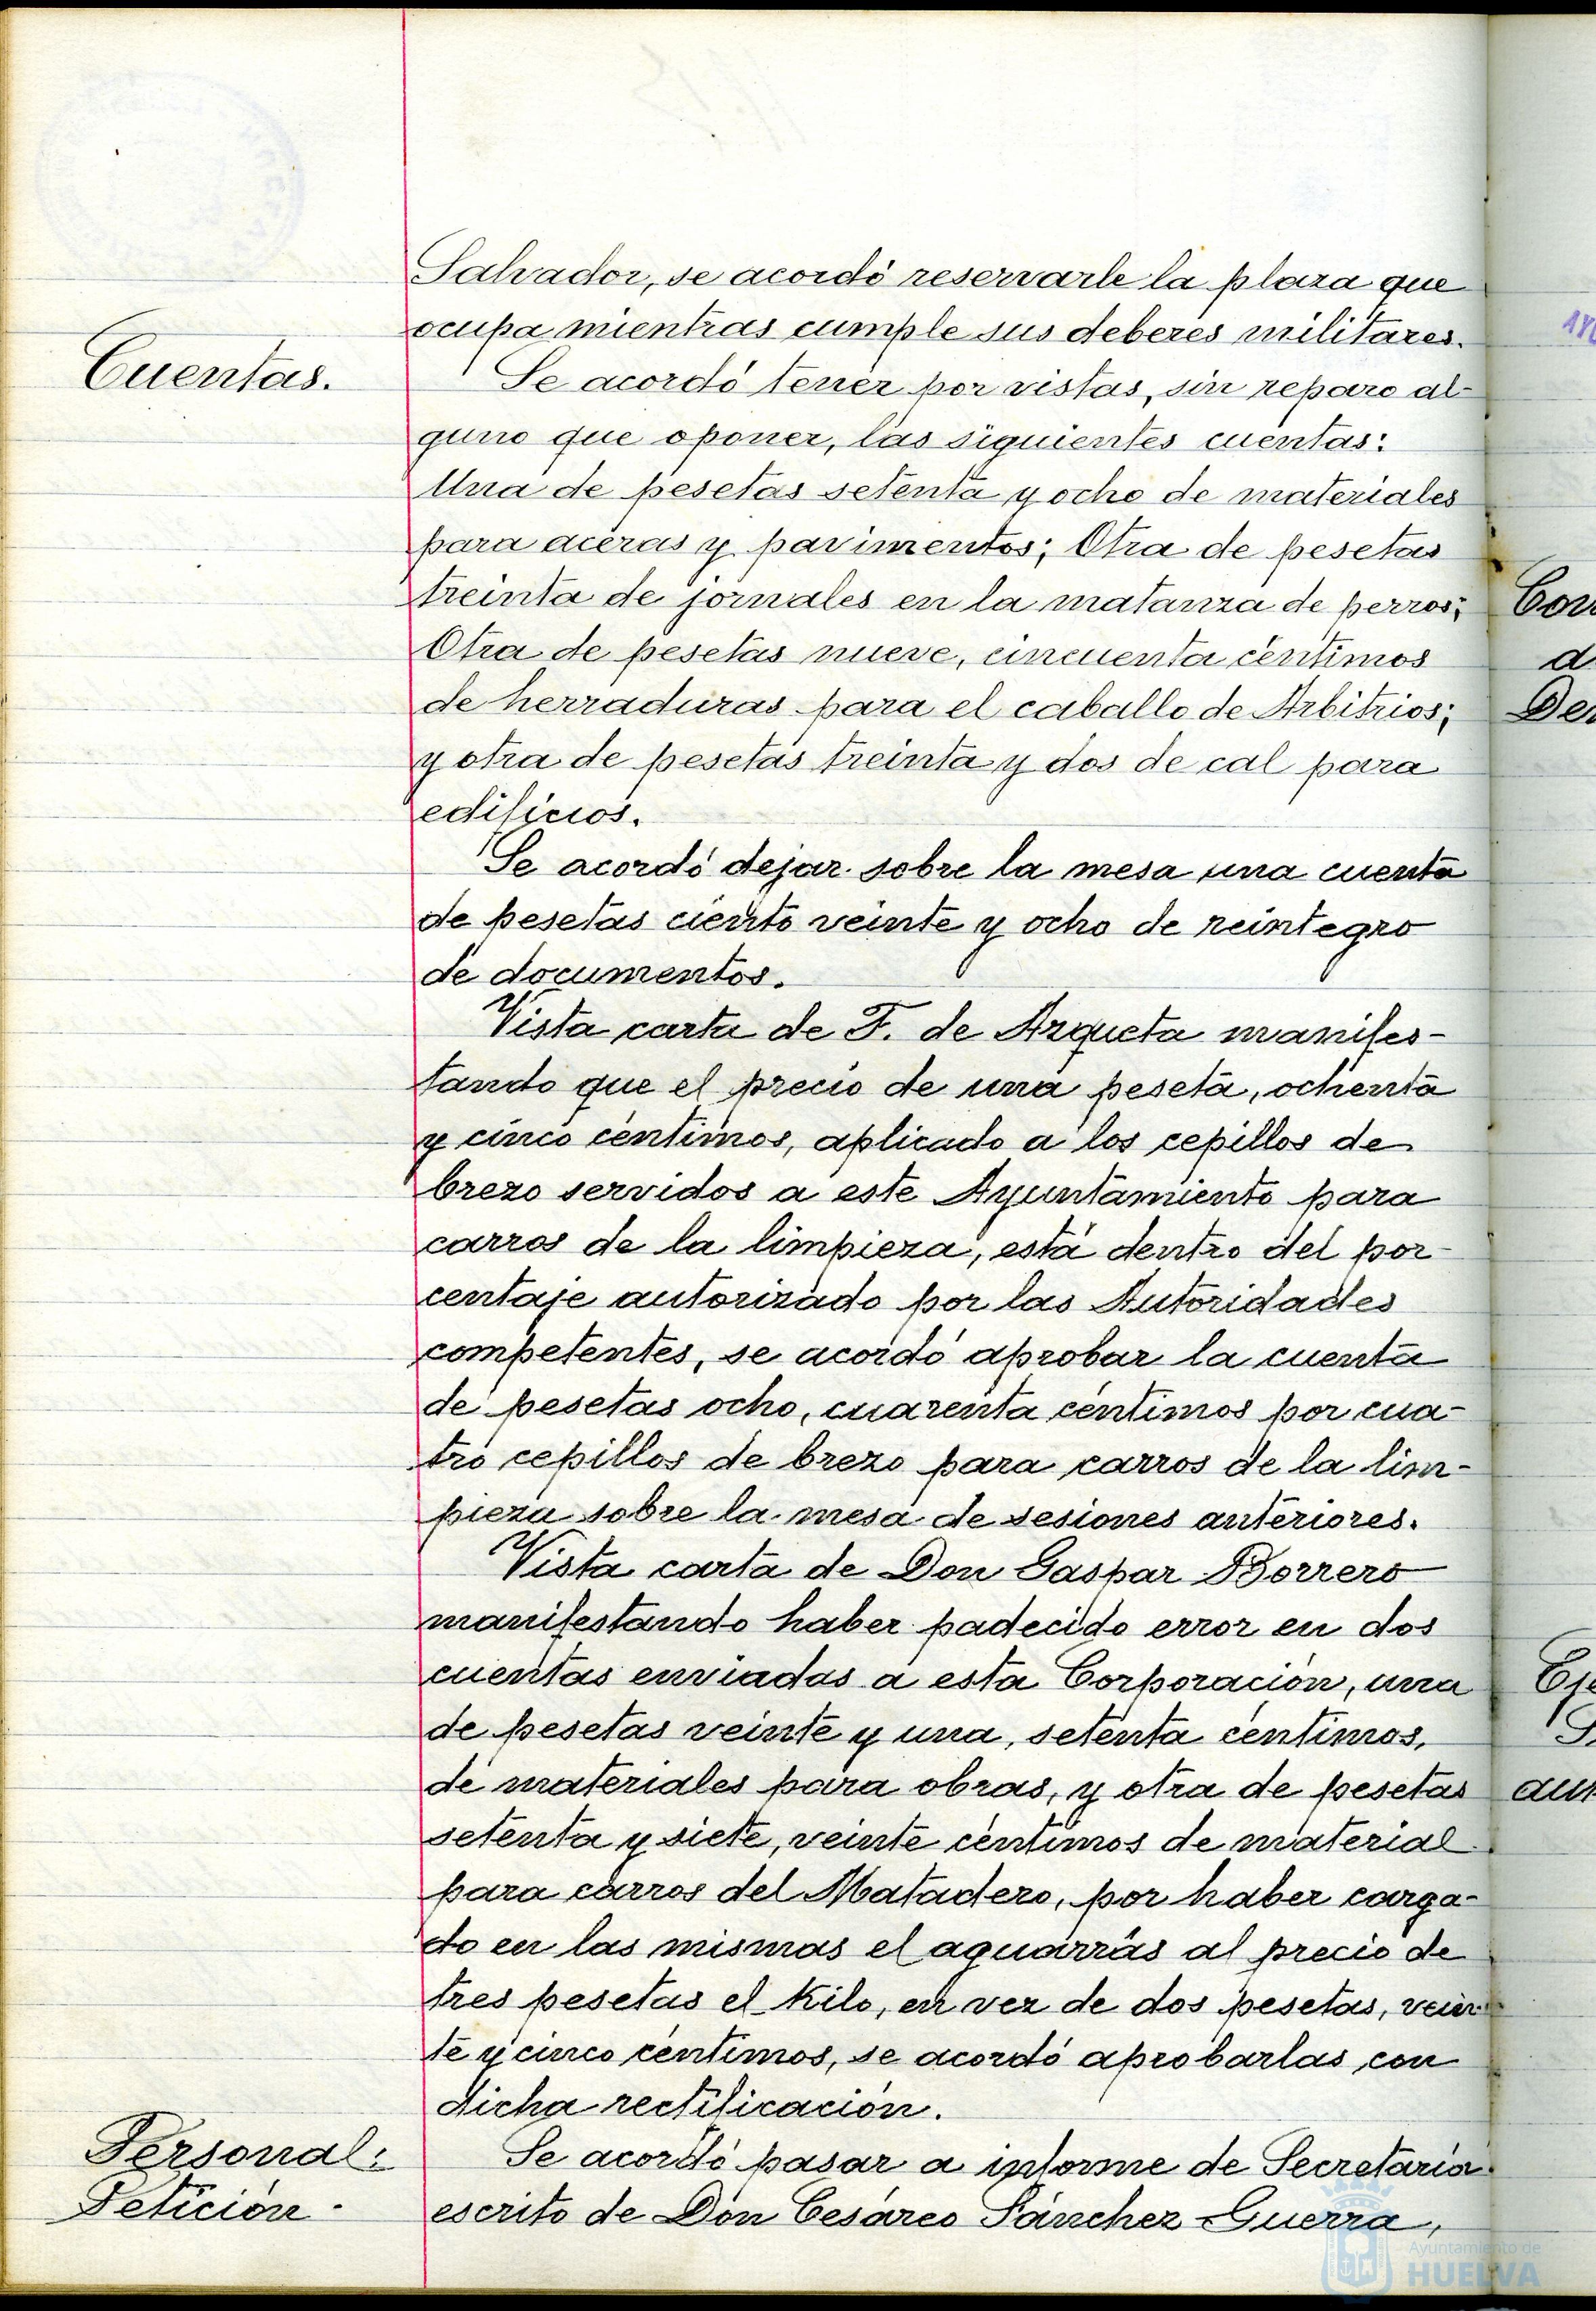 Salvador, se acordó reservarle la plaza que
ocupa mientras cumple sus deberes militares.
Cuentas.
Se acordó tener por vistas, sin reparo al-
guno que oponer, las siguientes cuentas:
Una de pesetas setenta y ocho de materiales
para aceras y pavimentos; Otra de pesetas
treinta de jornales en la matanza de perros;
Otra de pesetas nueve, cincuenta céntimos
de herraduras para el caballo de Arbitrios;
y otra de pesetas treinta y dos de cal para
edificios.
Se acordó dejar sobre la mesa una cuenta
de pesetas ciento veinte y ocho de reintegro
de documentos.
Vista carta de F. de Azqueta manifes-
tando que el precio de una peseta, ochenta
y cinco céntimos, aplicado a los cepillos de
brezo servidos a este Ayuntamiento para
carros de la limpieza, está dentro del por-
centaje autorizado por las Autoridades
competentes, se acordó aprobar la cuenta
de pesetas ocho, cuarenta céntimos por cua-
tro cepillos de brezo para carros de la lim-
pieza sobre la mesa de sesiones anteriores.
Vista carta de Don Gaspar Borrero
manifestando haber padecido error en dos
cuentas enviadas a esta Corporación, una
de pesetas veinte y una, setenta céntimos,
de materiales para obras, y otra de pesetas
setenta y siete, veinte céntimos de material
para carros del Matadero, por haber carga-
do en las mismas el aguarrás al precio de
tres pesetas el kilo, en vez de dos pesetas, vein-
te y cinco céntimos, se acordó aprobarlas con
dicha rectificación.
Personal:
Petición.
Se acordó pasar a informe de Secretaría
escrito de Don Cesáreo Sánchez Guerra,
Ayuntamiento de
HUELVA